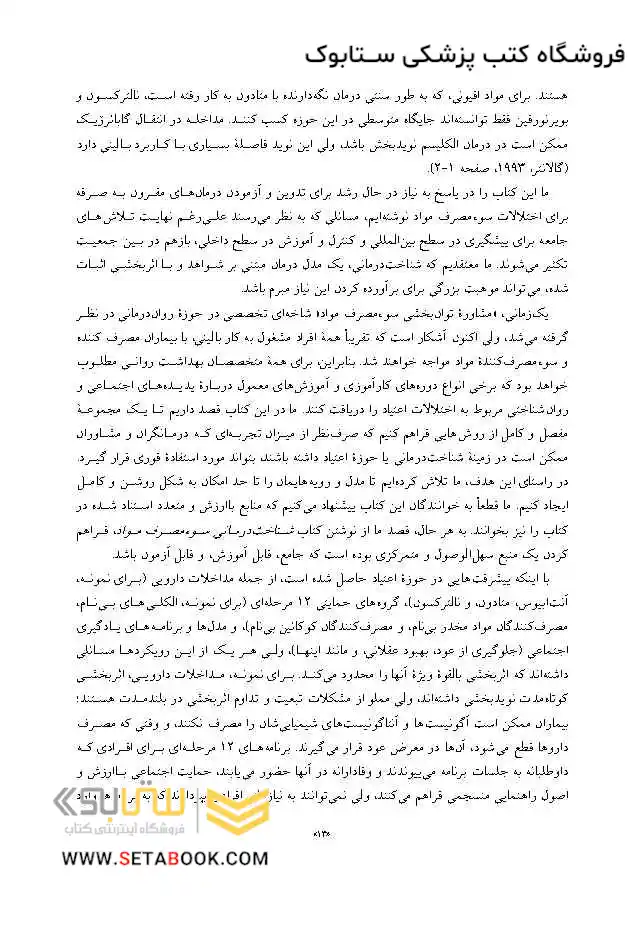 فروشگاه کتب پزشکی ستابوک
هستند. برای مواد افیونی، که به طور سنتی درمان نگه‌دارنده با متادون به کار رفته است، نالترکسون و
بوپرنورفین فقط توانسته‌اند جایگاه متوسطی در این حوزه کسب کنند. مداخله در انتقال گاباانرژیک
ممکن است در درمان الکلیسم نویدبخش باشد، ولی این نوید فاصلهٔ بسیاری با کاربرد بالینی دارد
(گالانتر، ۱۹۹۳، صفحه ۱-۲).
ما این کتاب را در پاسخ به نیاز در حال رشد برای تدوین و آزمودن درمان‌های مقرون به صرفه
برای اختلالات سوءمصرف مواد نوشته‌ایم، مسائلی که به نظر می‌رسند علی‌رغم نهایت تلاش‌های
جامعه برای پیشگیری در سطح بین‌المللی و کنترل و آموزش در سطح داخلی، بازهم در بین جمعیت
تکثیر می‌شوند. ما معتقدیم که شناخت‌درمانی، یک مدل درمان مبتنی بر شواهد و با اثربخشی اثبات
شده، می‌تواند موهبت بزرگی برای برآورده کردن این نیاز مبرم باشد.
یک‌زمانی، «مشاورهٔ توان‌بخشی سوءمصرف مواد» شاخه‌ای تخصصی در حوزهٔ روان‌درمانی در نظر
گرفته می‌شد، ولی اکنون آشکار است که تقریباً همهٔ افراد مشغول به کار بالینی، با بیماران مصرف کننده
و سوءمصرف‌کنندهٔ مواد مواجه خواهند شد. بنابراین، برای همهٔ متخصصان بهداشت روانی مطلوب
خواهد بود که برخی انواع دوره‌های کارآموزی و آموزش‌های معمول دربارهٔ پدیده‌های اجتماعی و
روان‌شناختی مربوط به اختلالات اعتیاد را دریافت کنند. ما در این کتاب قصد داریم تا یک مجموعهٔ
مفصل و کامل از روش‌هایی فراهم کنیم که صرف‌نظر از میزان تجربه‌ای که درمانگران و مشاوران
ممکن است در زمینهٔ شناخت‌درمانی یا حوزهٔ اعتیاد داشته باشند، بتواند مورد استفادهٔ فوری قرار گیرد.
در راستای این هدف، ما تلاش کرده‌ایم تا مدل و رویه‌هایمان را تا حد امکان به شکل روشن و کامل
ایجاد کنیم. ما قطعاً به خوانندگان این کتاب پیشنهاد می‌کنیم که منابع باارزش و متعدد استناد شده در
کتاب را نیز بخوانند. به هر حال، قصد ما از نوشتن کتاب شناخت‌درمانی سوءمصرف مواد، فراهم
کردن یک منبع سهل‌الوصول و متمرکزی بوده است که جامع، قابل آموزش، و قابل آزمون باشد.
با اینکه پیشرفت‌هایی در حوزهٔ اعتیاد حاصل شده است، از جمله مداخلات دارویی (برای نمونه،
آنت‌ابیوس، متادون، و نالترکسون)، گروه‌های حمایتی ۱۲ مرحله‌ای (برای نمونه، الکلی‌های بی‌نام،
مصرف‌کنندگان مواد مخدر بی‌نام، و مصرف‌کنندگان کوکائین بی‌نام)، و مدل‌ها و برنامه‌های یادگیری
اجتماعی (جلوگیری از عود، بهبود عقلانی، و مانند اینها)، ولی هر یک از این رویکردها مسائلی
داشته‌اند که اثربخشی بالقوهٔ ویژهٔ آنها را محدود می‌کند. برای نمونه، مداخلات دارویی، اثربخشی
کوتاه‌مدت نویدبخشی داشته‌اند، ولی مملو از مشکلات تبعیت و تداوم اثربخشی در بلندمدت هستند؛
بیماران ممکن است آگونیست‌ها و آنتاگونیست‌های شیمیایی‌شان را مصرف نکنند، و وقتی که مصرف
داروها قطع می‌شود، آن‌ها در معرض عود قرار می‌گیرند. برنامه‌های ۱۲ مرحله‌ای برای افرادی که
داوطلبانه به جلسات برنامه می‌پیوندند و وفادارانه در آنها حضور می‌یابند، حمایت اجتماعی باارزش و
اصول راهنمایی منسجمی فراهم می‌کنند، ولی نمی‌توانند به نیاز
ستابوک
فروشگاه اینترنتی کتاب
«۱۳»
WWW.SETABOOK.COM